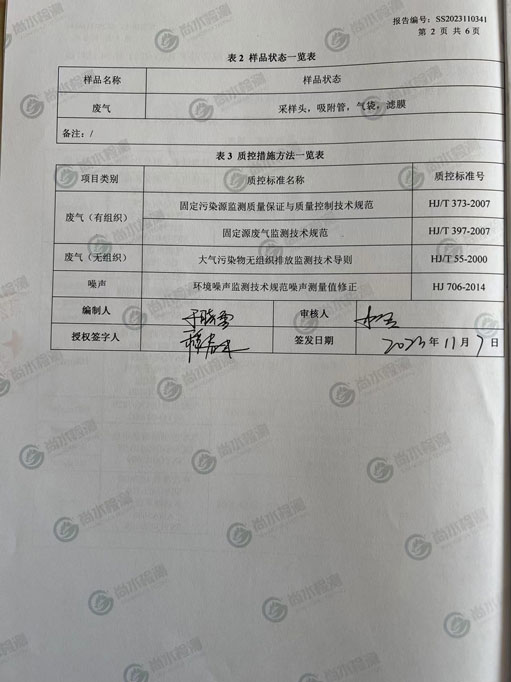 报告编号：SS2023110341
第 2 页 共 6 页
表 2 样品状态一览表
样品名称 样品状态
废气 采样头，吸附管，气袋，滤膜
备注：/
表 3 质控措施方法一览表
项目类别 质控标准名称 质控标准号
废气（有组织） 固定污染源监测质量保证与质量控制技术规范 HJ/T 373-2007
固定源废气监测技术规范 HJ/T 397-2007
废气（无组织） 大气污染物无组织排放监测技术导则 HJ/T 55-2000
噪声 环境噪声监测技术规范噪声测量值修正 HJ 706-2014
编制人 审核人
授权签字人 签发日期 2023 年 11 月 7 日
尚水检测